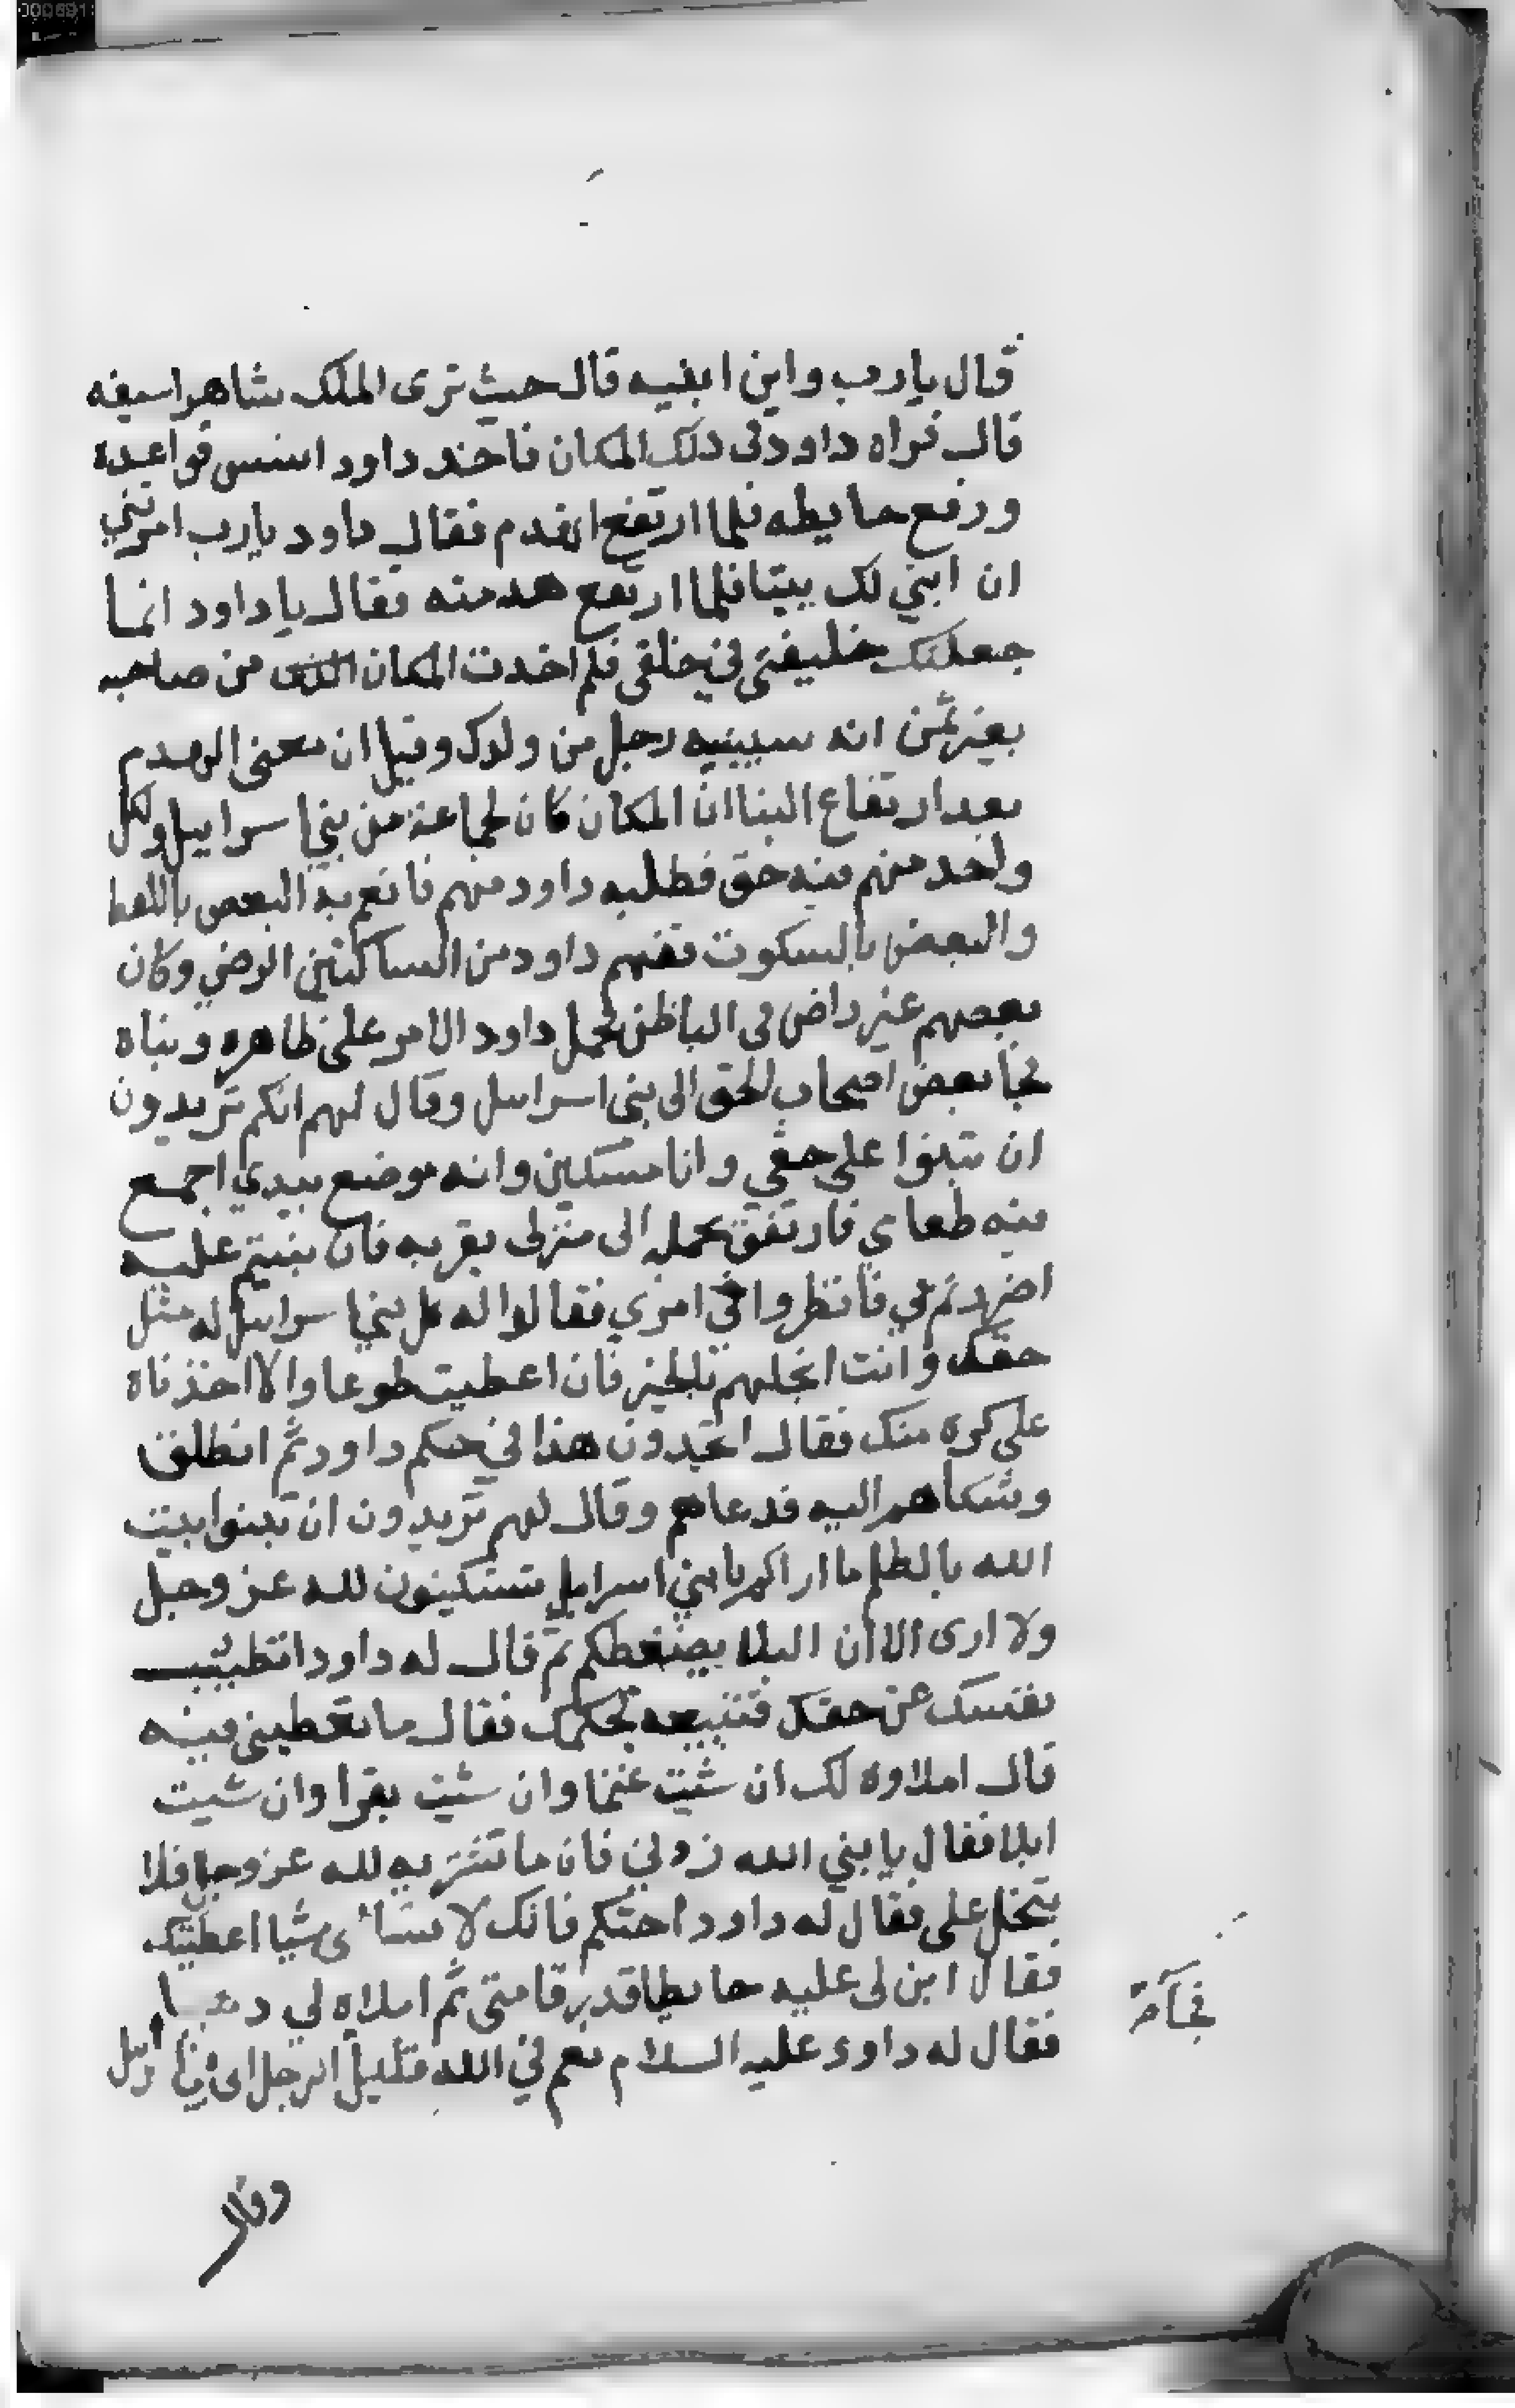 قال يارب واين ابنيه قال حيث ترى الملك شاهرا سيفه
قال فراه داود في ذلك المكان فاخذ داود اسس قواعده
ورفع حايطه فلما ارتفع انهدم فقال داود يارب امرتني
ان ابني لك بيتا فلما ارتفع هدمته فقال يا داود انما
جعلتك خليفتي في خلقي فلم اخذت المكان من صاحبه
بغير ثمن انه سيبنيه رجل من ولدك وقيل ان معنى الهدم
بعد ارتفاع البنا ان المكان كان لجماعة من بني اسراييل ولكل
واحد منهم فيه حق فطلبه داود منهم فانعم به البعض باللفظ
والبعض بالسكوت ففهم داود من الساكتين الرضي وكان
بعضهم غير راض في الباطن فحمل داود الامر على ظاهره وبناه
فجا بعض اصحاب الحق الى بني اسراييل وقال لهم انكم تريدون
ان تبنوا على حقي وانا مسكين وانه موضع بيدي اجمع
فيه طعامي فارتفق بحمله الى منزلي بقربه فان بنيتم عليه
اضررتم بي فانظروا في امري فقالوا له كل بني اسراييل له مثل
حقك وانت ابخلهم فان اعطيت طوعا والا اخذناه
على كره منك فقال اتجدون هذا في حكم داود ثم انطلق
وشكاهم اليه فدعاهم وقال لهم تريدون ان تبنوا بيت
الله بالظلم ما اراكم يا بني اسراييل تستكينون لله عز وجل
ولا ارى الا ان البلا يضغطكم ثم قال له داود اتطيب
نفسك عن حقك فتبيعه بحكمك فقال ما تعطيني فيه
قال املاوه لك ان شيت غنما وان شيت بقرا وان شيت
ابلا فقال يا بني الله زدني فان ما تشتريه لله عز وجل فلا
تبخل علي فقال له داود احتكم فانك لا تسأ لي شيا اعطيتك
فقال ابن لي عليه حايطا قدر قامتي ثم املاه لي ذهبا
فقال له داود عليه السلام نعم في الله قليل الرجل الى بني اسراييل
وقال